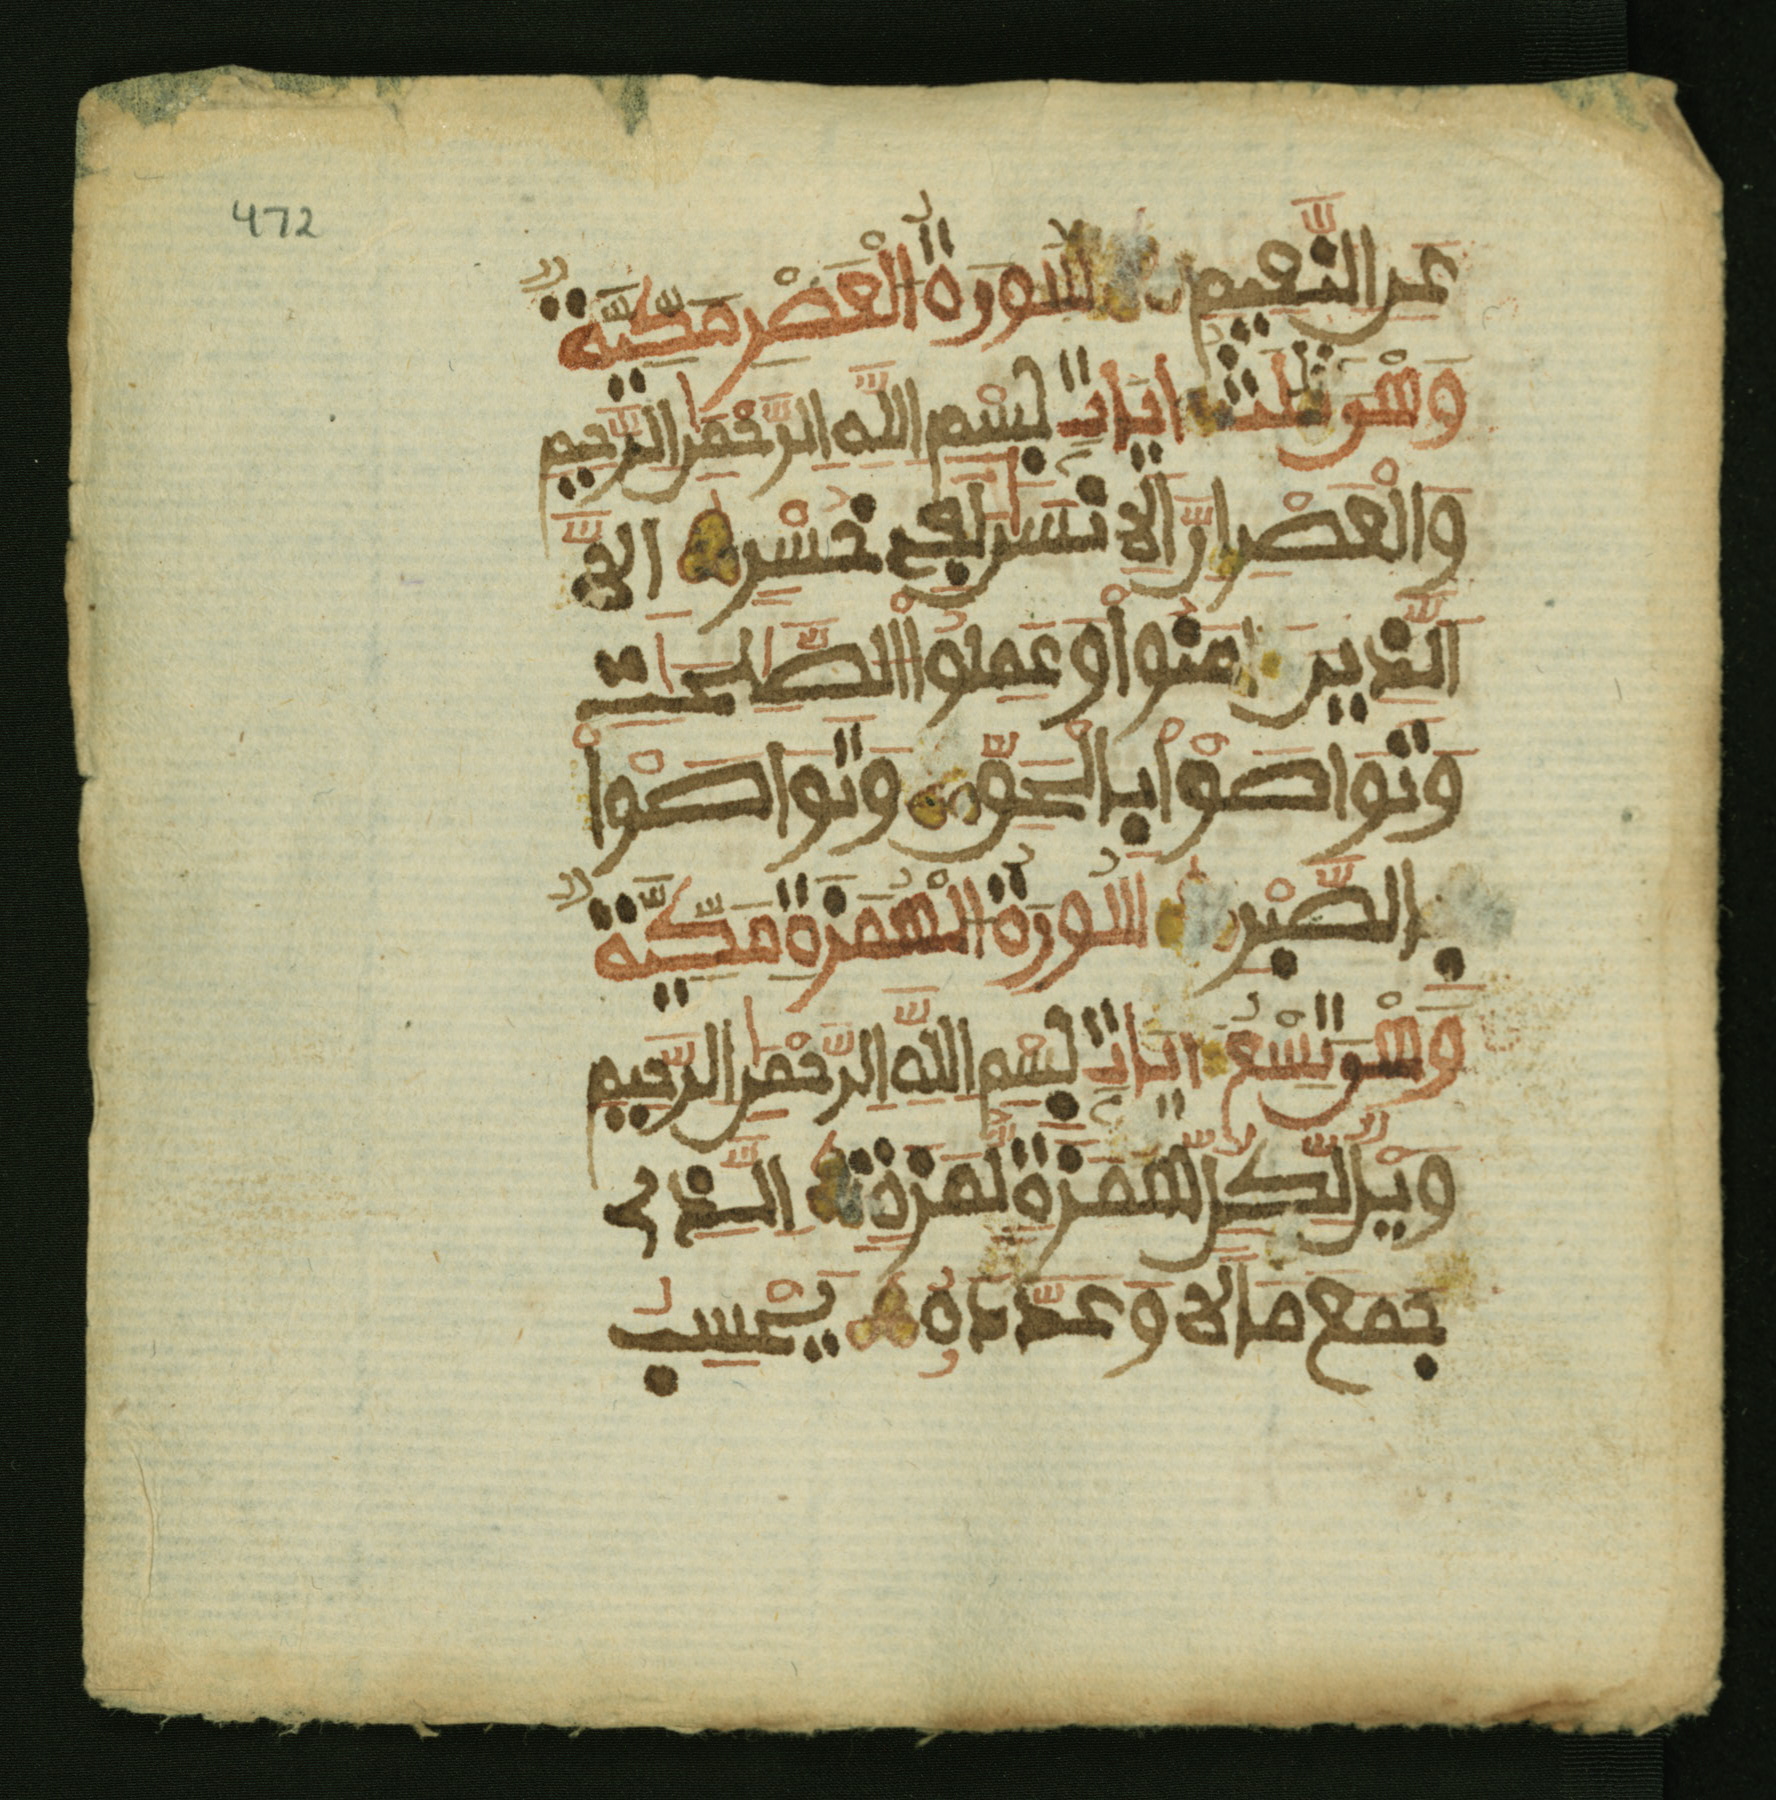 472
عن النَّعِيمِ سُورَةُ الْعَصْرِ مَكِّيَّةٌ
وَهْىَ ثَلَثُ ءَايَاتٍ بِسْمِ اللَّهِ الرَّحْمَٰنِ الرَّحِيمِ
وَالْعَصْرِ إِنَّ الْإِنسَٰنَ لَفِى خُسْرٍ إِلَّا
الَّذِينَ ءَامَنُواْ وَعَمِلُواْ الصَّٰلِحَٰتِ
وَتَوَاصَوْاْ بِالْحَقِّ وَتَوَاصَوْاْ
بِالصَّبْرِ سُورَةُ الْهُمَزَةِ مَكِّيَّةٌ
وَهْىَ تِسْعُ ءَايَاتٍ بِسْمِ اللَّهِ الرَّحْمَٰنِ الرَّحِيمِ
وَيْلٌ لِّكُلِّ هُمَزَةٍ لُّمَزَةٍ الَّذِى
جَمَعَ مَالًا وَعَدَّدَهُ يَحْسِبُ